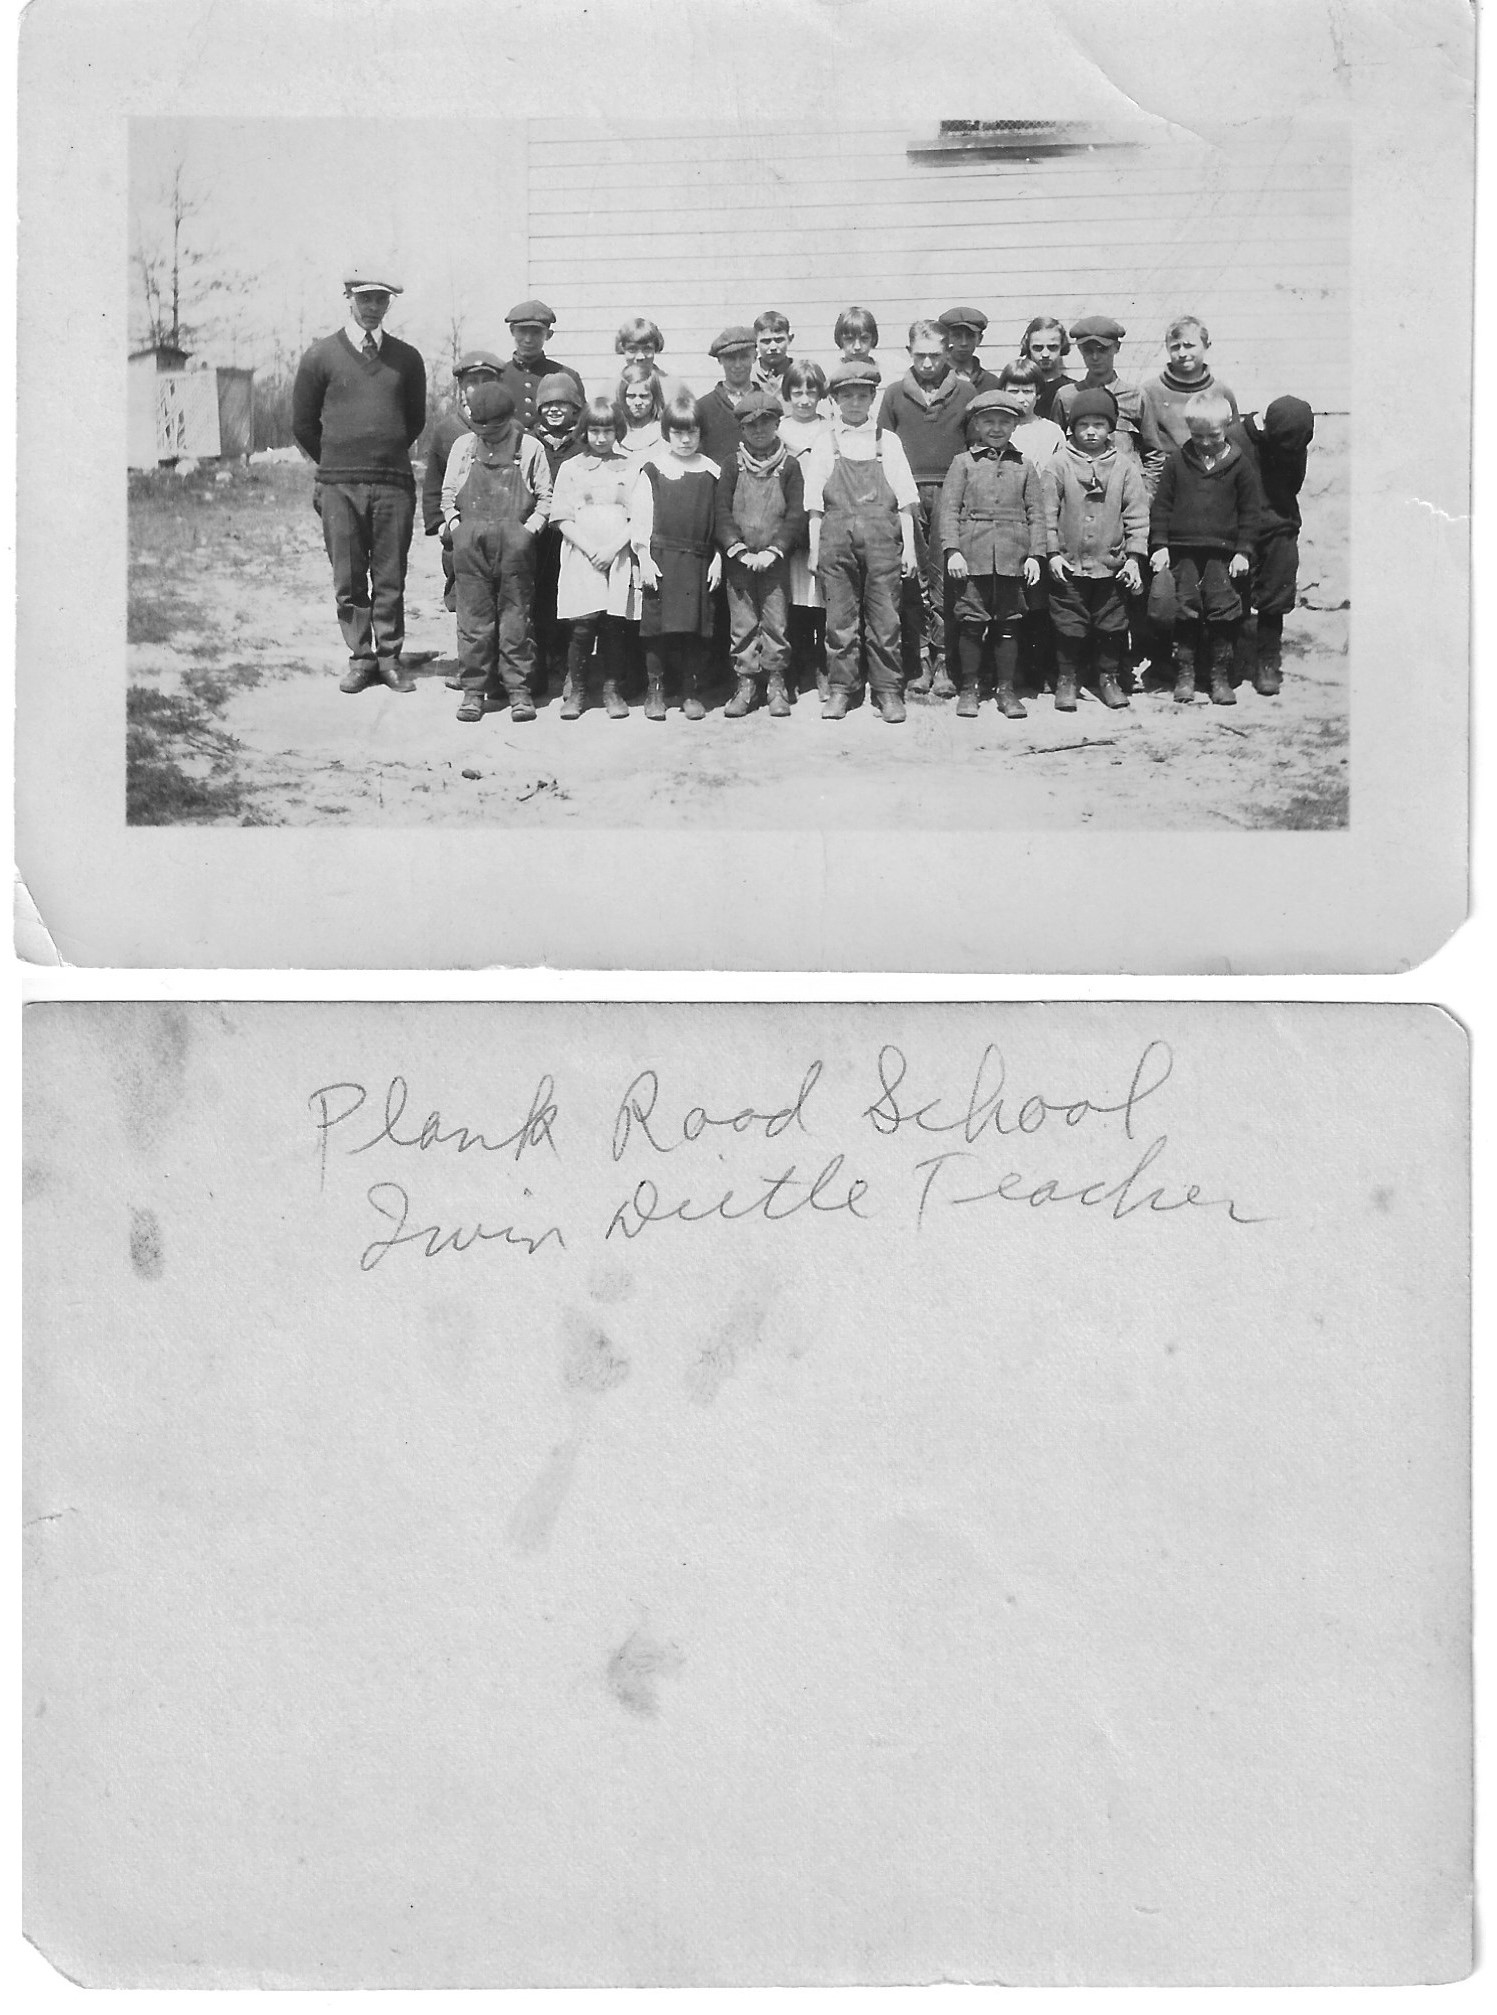 Plank Road School
Irwin Dietle Teacher